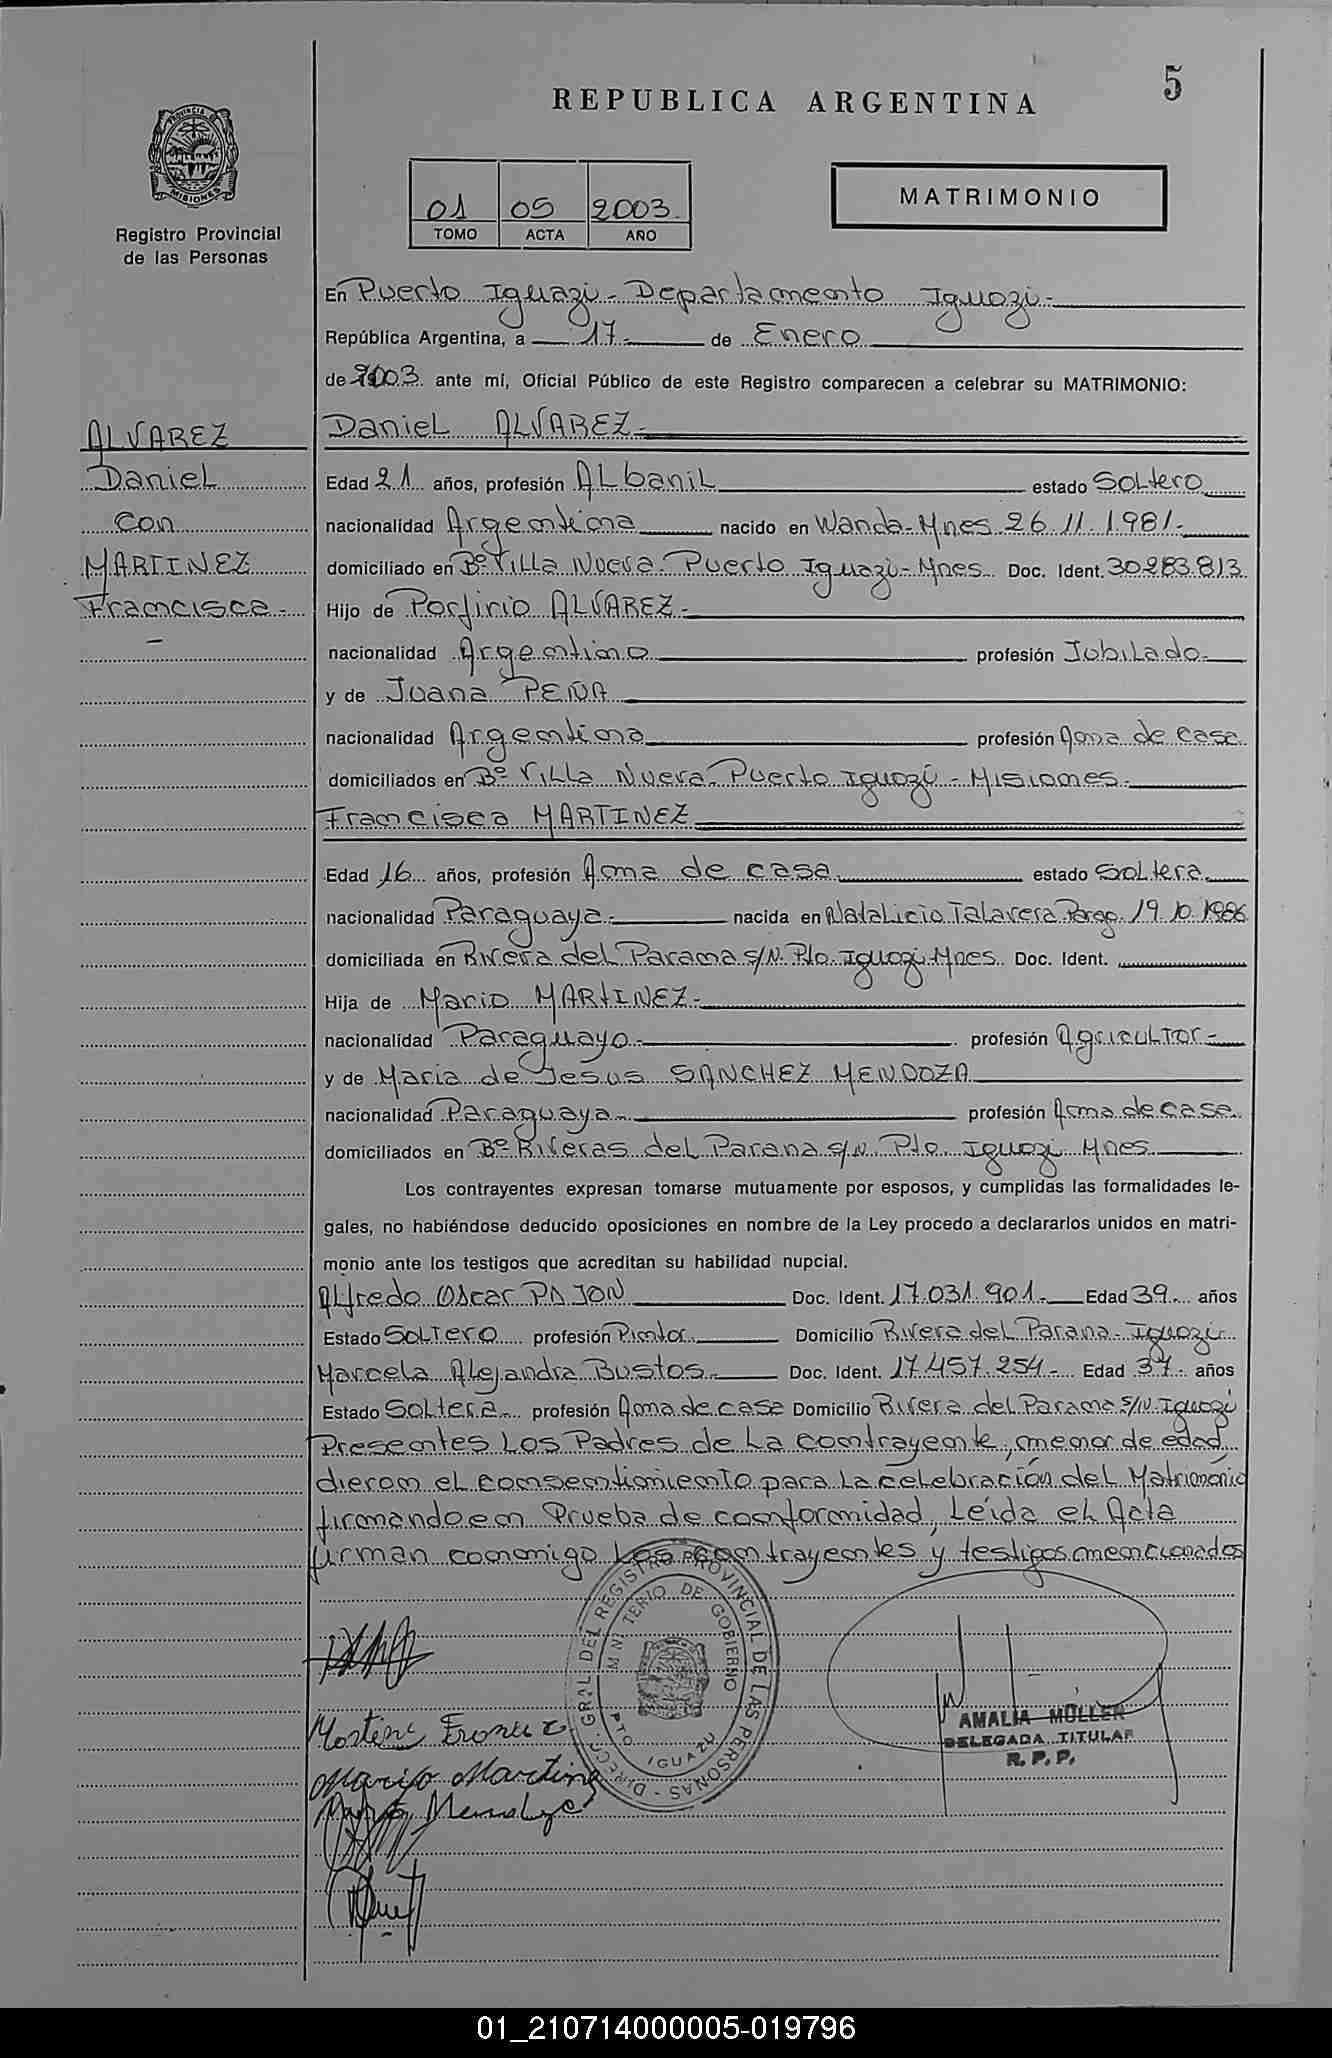 5
REPUBLICA ARGENTINA
PROVINCIA DE MISIONES
Registro Provincial
de las Personas
01 05 2003
TOMO ACTA AÑO
MATRIMONIO
En Puerto Iguazú - Departamento Iguazú -
República Argentina, a 17 de Enero
de 2003 ante mí, Oficial Público de este Registro comparecen a celebrar su MATRIMONIO:
ALVAREZ
Daniel
con
MARTINEZ
Francisca -
Daniel ALVAREZ -
Edad 21 años, profesión Albañil estado Soltero
nacionalidad Argentina nacido en Wanda - Mnes 26.11.1981.
domiciliado en Bº Villa Nueva - Puerto Iguazú - Mnes Doc. Ident. 30.283.813
Hijo de Porfirio ALVAREZ -
nacionalidad Argentino profesión Jubilado
y de Juana PEÑA
nacionalidad Argentina profesión Ama de casa
domiciliados en Bº Villa Nueva - Puerto Iguazú - Misiones -
Francisca MARTINEZ
Edad 16 años, profesión Ama de casa estado Soltera
nacionalidad Paraguaya - nacida en Natalicio Talavera Parag. 19.10.1986
domiciliada en Rivera del Parana s/N. Pto. Iguazú Mnes Doc. Ident.
Hija de Mario MARTINEZ -
nacionalidad Paraguayo - profesión Agricultor -
y de Maria de Jesus SANCHEZ MENDOZA
nacionalidad Paraguaya - profesión Ama de casa
domiciliados en Bº Riveras del Parana s/N. Pto. Iguazú Mnes
Los contrayentes expresan tomarse mutuamente por esposos, y cumplidas las formalidades le-
gales, no habiéndose deducido oposiciones en nombre de la Ley procedo a declararlos unidos en matri-
monio ante los testigos que acreditan su habilidad nupcial.
Alfredo Oscar PAJON Doc. Ident. 17.031.901 - Edad 39 años
Estado Soltero profesión Pintor Domicilio Rivera del Parana - Iguazú
Marcela Alejandra Bustos - Doc. Ident. 17.457.254 - Edad 37 - años
Estado Soltera profesión Ama de casa Domicilio Rivera del Parana s/N. Iguazú
Presentes Los Padres de La contrayente, menor de edad,
dieron el consentimiento para La celebración del Matrimonio
firmando en Prueba de conformidad, Leída el Acta
firman conmigo Los contrayentes y testigos mencionados
DIRECC. GRAL. DEL REGISTRO PROVINCIAL DE LAS PERSONAS -
MINISTERIO DE GOBIERNO
PTO IGUAZU
AMALIA MÜLLER
DELEGADA TITULAR
R. P. P.
Mario Martinez
01_210714000005-019796